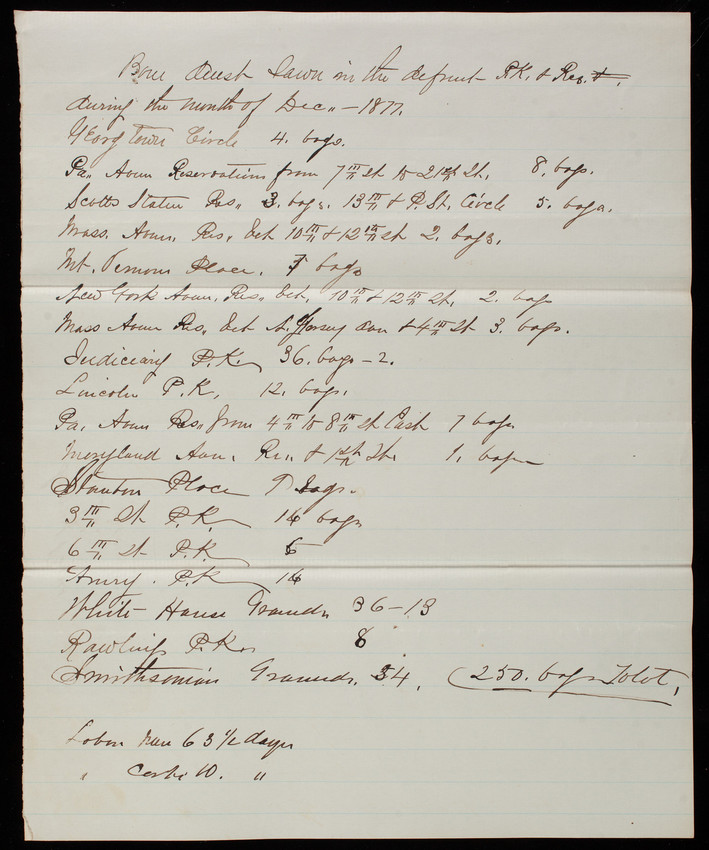 Bone Dust Sawn in the defrent P.K. & Res.
during the month of Dec,, - 1877.
Georg Town Circle 4. bags.
Pa,, Avnu Reservations from 7th St to 21st St. 8. bags.
Scotts Statue Res,, 3. bags. 13th & P. St. Circle 5. bags.
Mass. Avnu. Res. bet 10th & 12th st 2. bags.
Mt. Vernon Place. 7 bags
New York Avnu. Res,, bet. 10th & 12th St. 2. bags
Mass Avnu Res. bet N. Jersey & 4th St 3. bags.
Judiciary P.K. 36. bags - 2.
Lincoln P.K. 12. bags.
Pa. Avnu Res,, from 4th to 8th st East 7 bags
Maryland Avn. Res. & 1st St. 1. bag
Stanton Place 9 bags.
3th St P.K. 14 bags
6th st P.K. 6
Amry. P.K. 14
White House Grounds 36-13
Rawlins P.K. 8
Smithsonian Grounds. 54. (250. bags Totot.
Labor 63 1/2 days
,, Carts 10. ,,